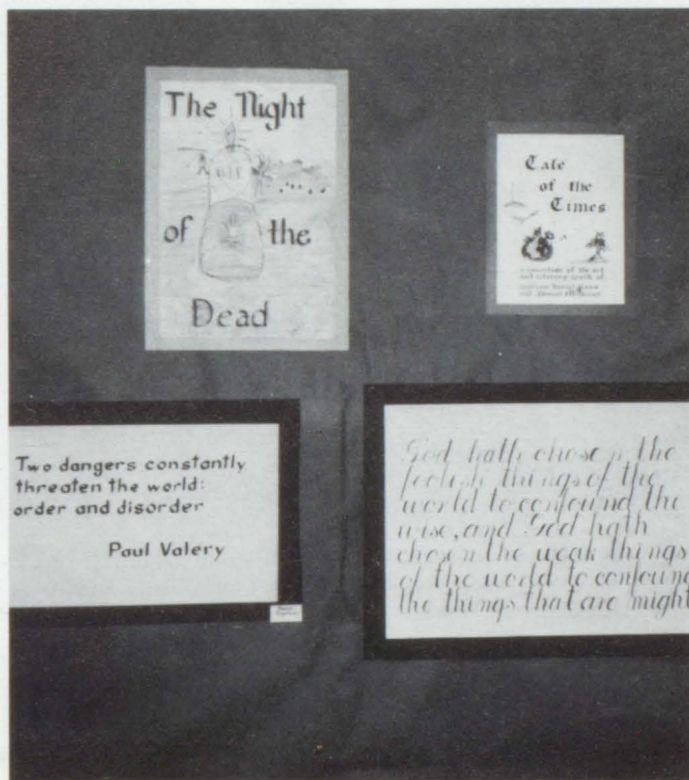 The Night
of the
Dead
Tale
of the
Times
a collection of the art
and literary work of
Two dangers constantly
threaten the world:
order and disorder
Paul Valery
God hath chosen the
foolish things of the
world to confound the
wise, and God hath
chosen the weak things
of the world to confound
the things that are might